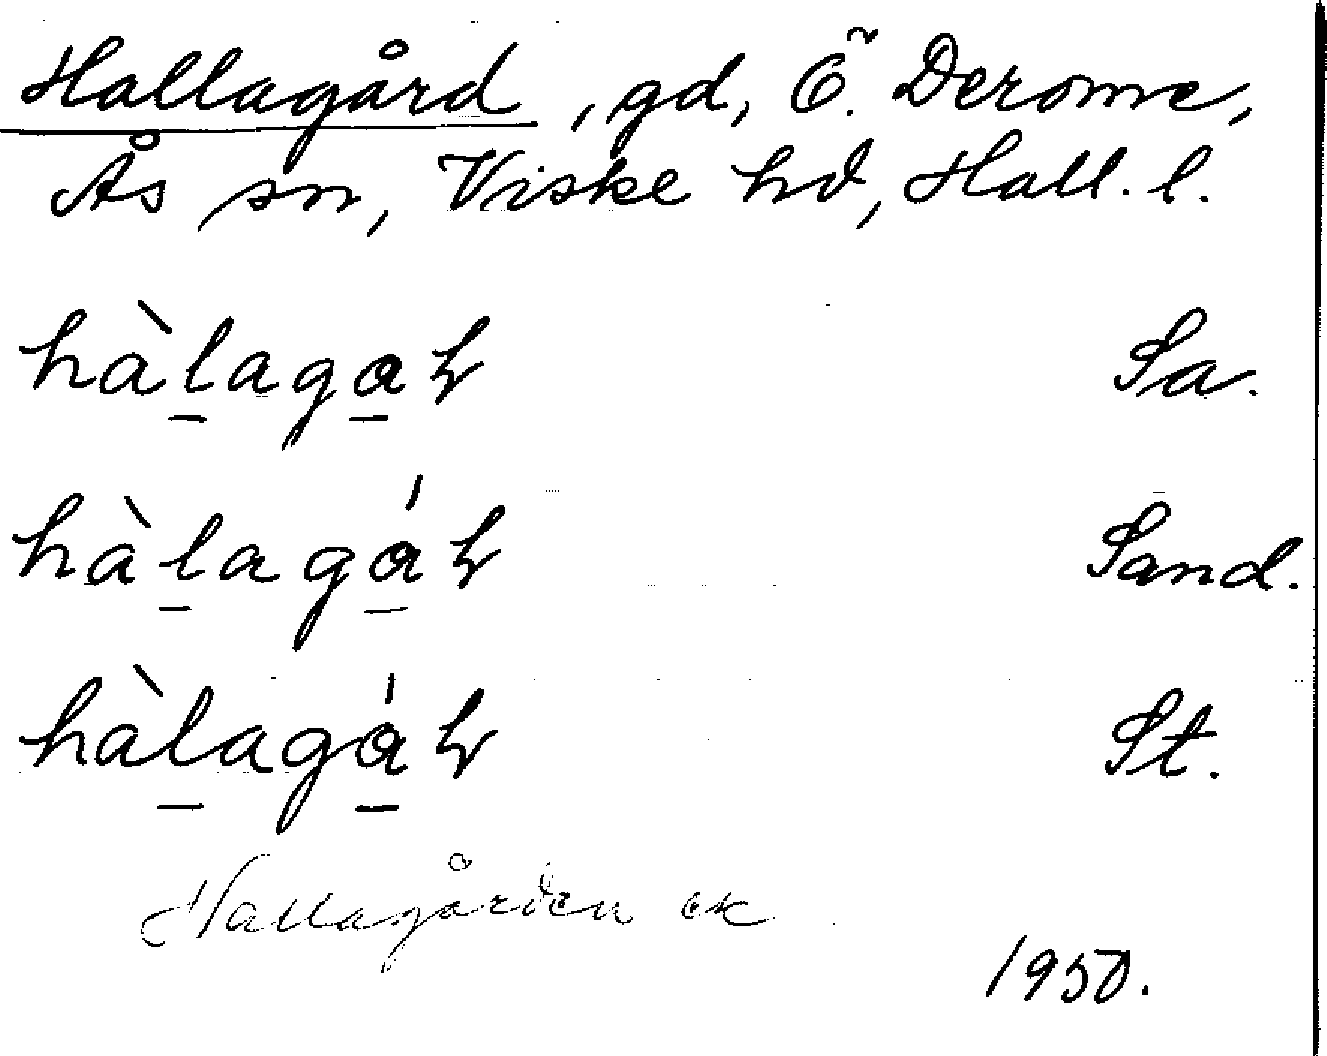 Hallagård, gd, Ö. Derome,
Ås sn, Viske hd, Hall. l.
hàlagaꝛ Sa.
hàlagáꝛ Sand.
hàlagáꝛ St.
Hallagården ek
1950.